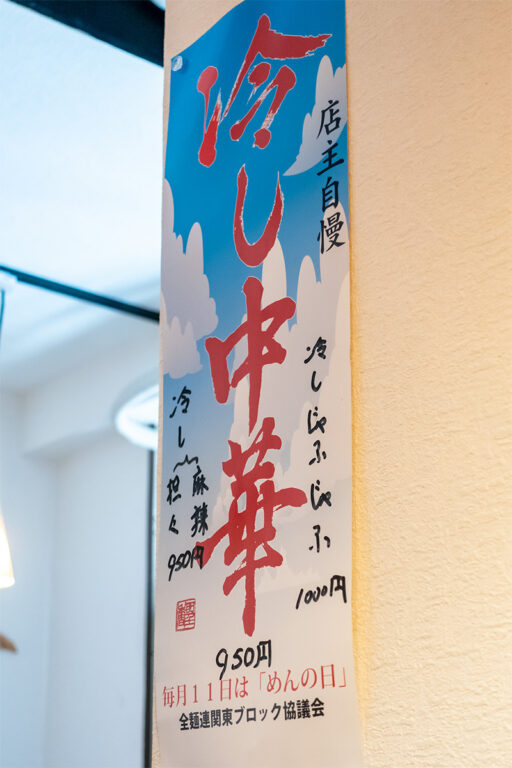 店主自慢
冷し中華
冷しじゃふじゃふ
1000円
冷し
麻辣
担々
950円
950円
毎月11日は「めんの日」
全麺連関東ブロック協議会